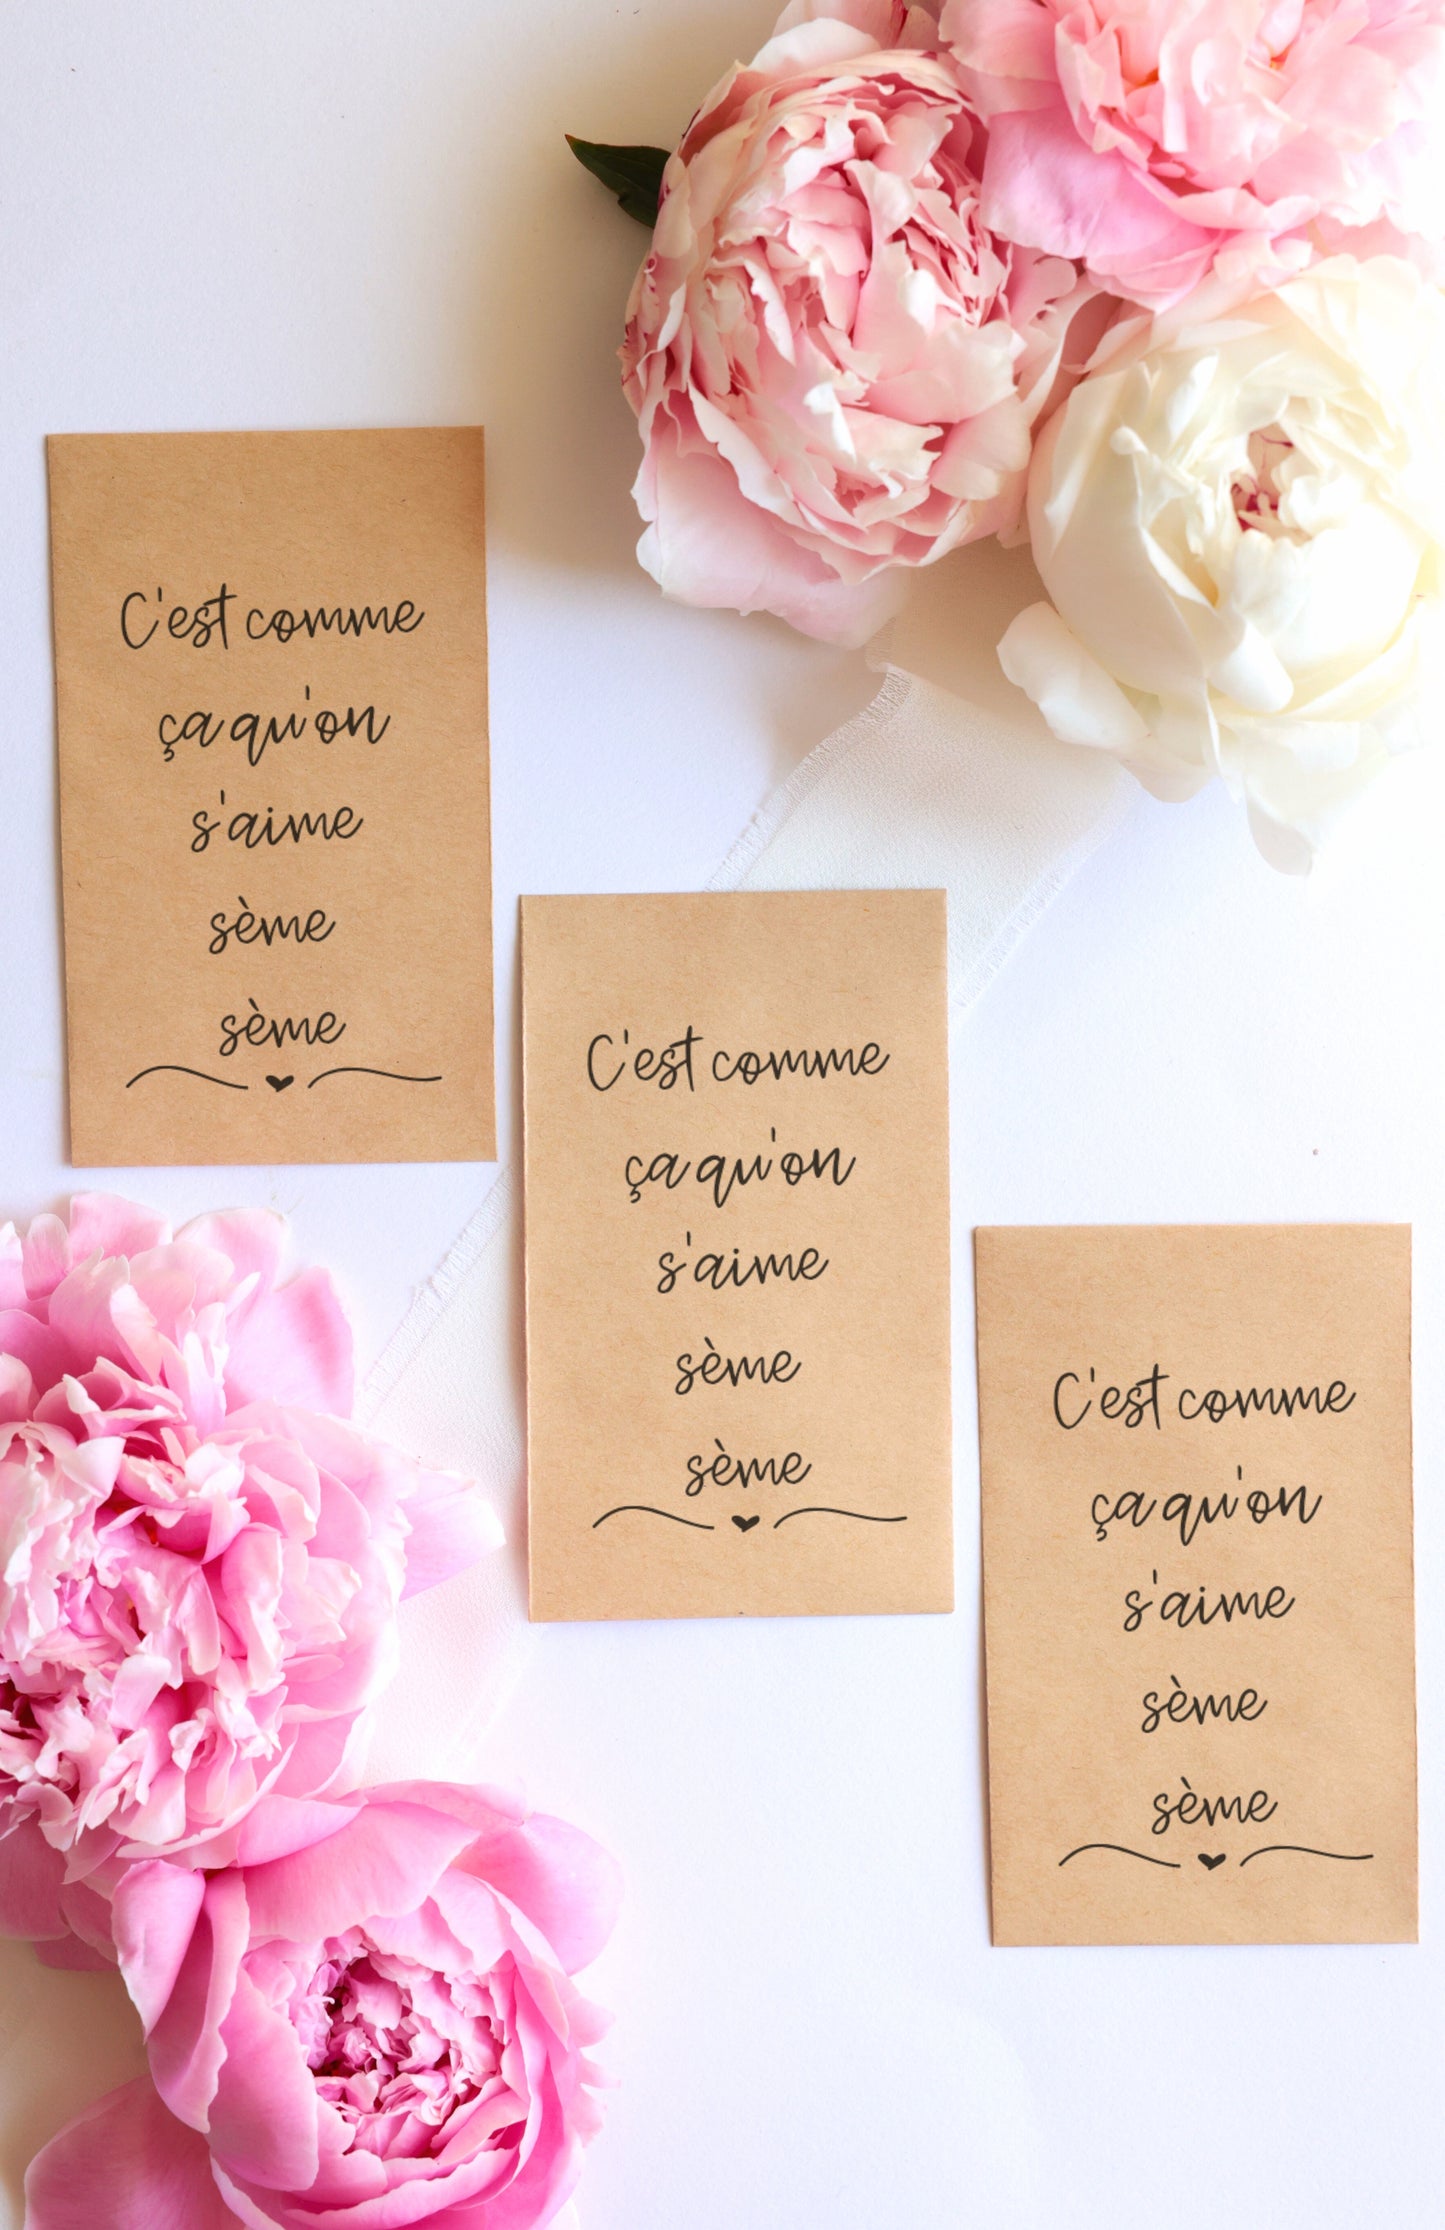 C'est comme
ça qu'on
s'aime
sème
sème
C'est comme
ça qu'on
s'aime
sème
sème
C'est comme
ça qu'on
s'aime
sème
sème